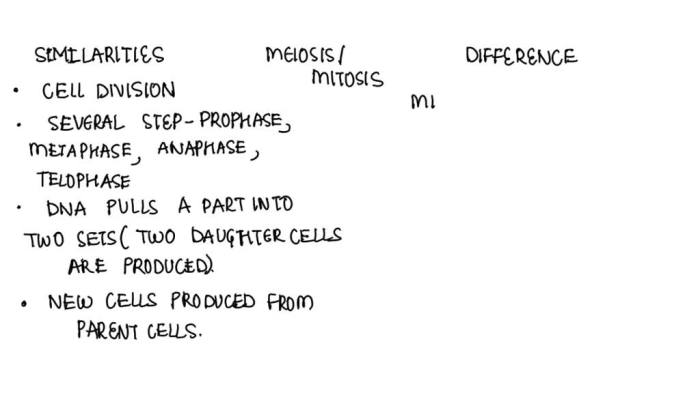 SIMILARITIES MEIOSIS/ DIFFERENCE
MITOSIS
• CELL DIVISION
MI
• SEVERAL STEP-PROPHASE,
METAPHASE, ANAPHASE,
TELOPHASE
• DNA PULLS A PART INTO
TWO SETS( TWO DAUGHTER CELLS
ARE PRODUCED).
• NEW CELLS PRODUCED FROM
PARENT CELLS.